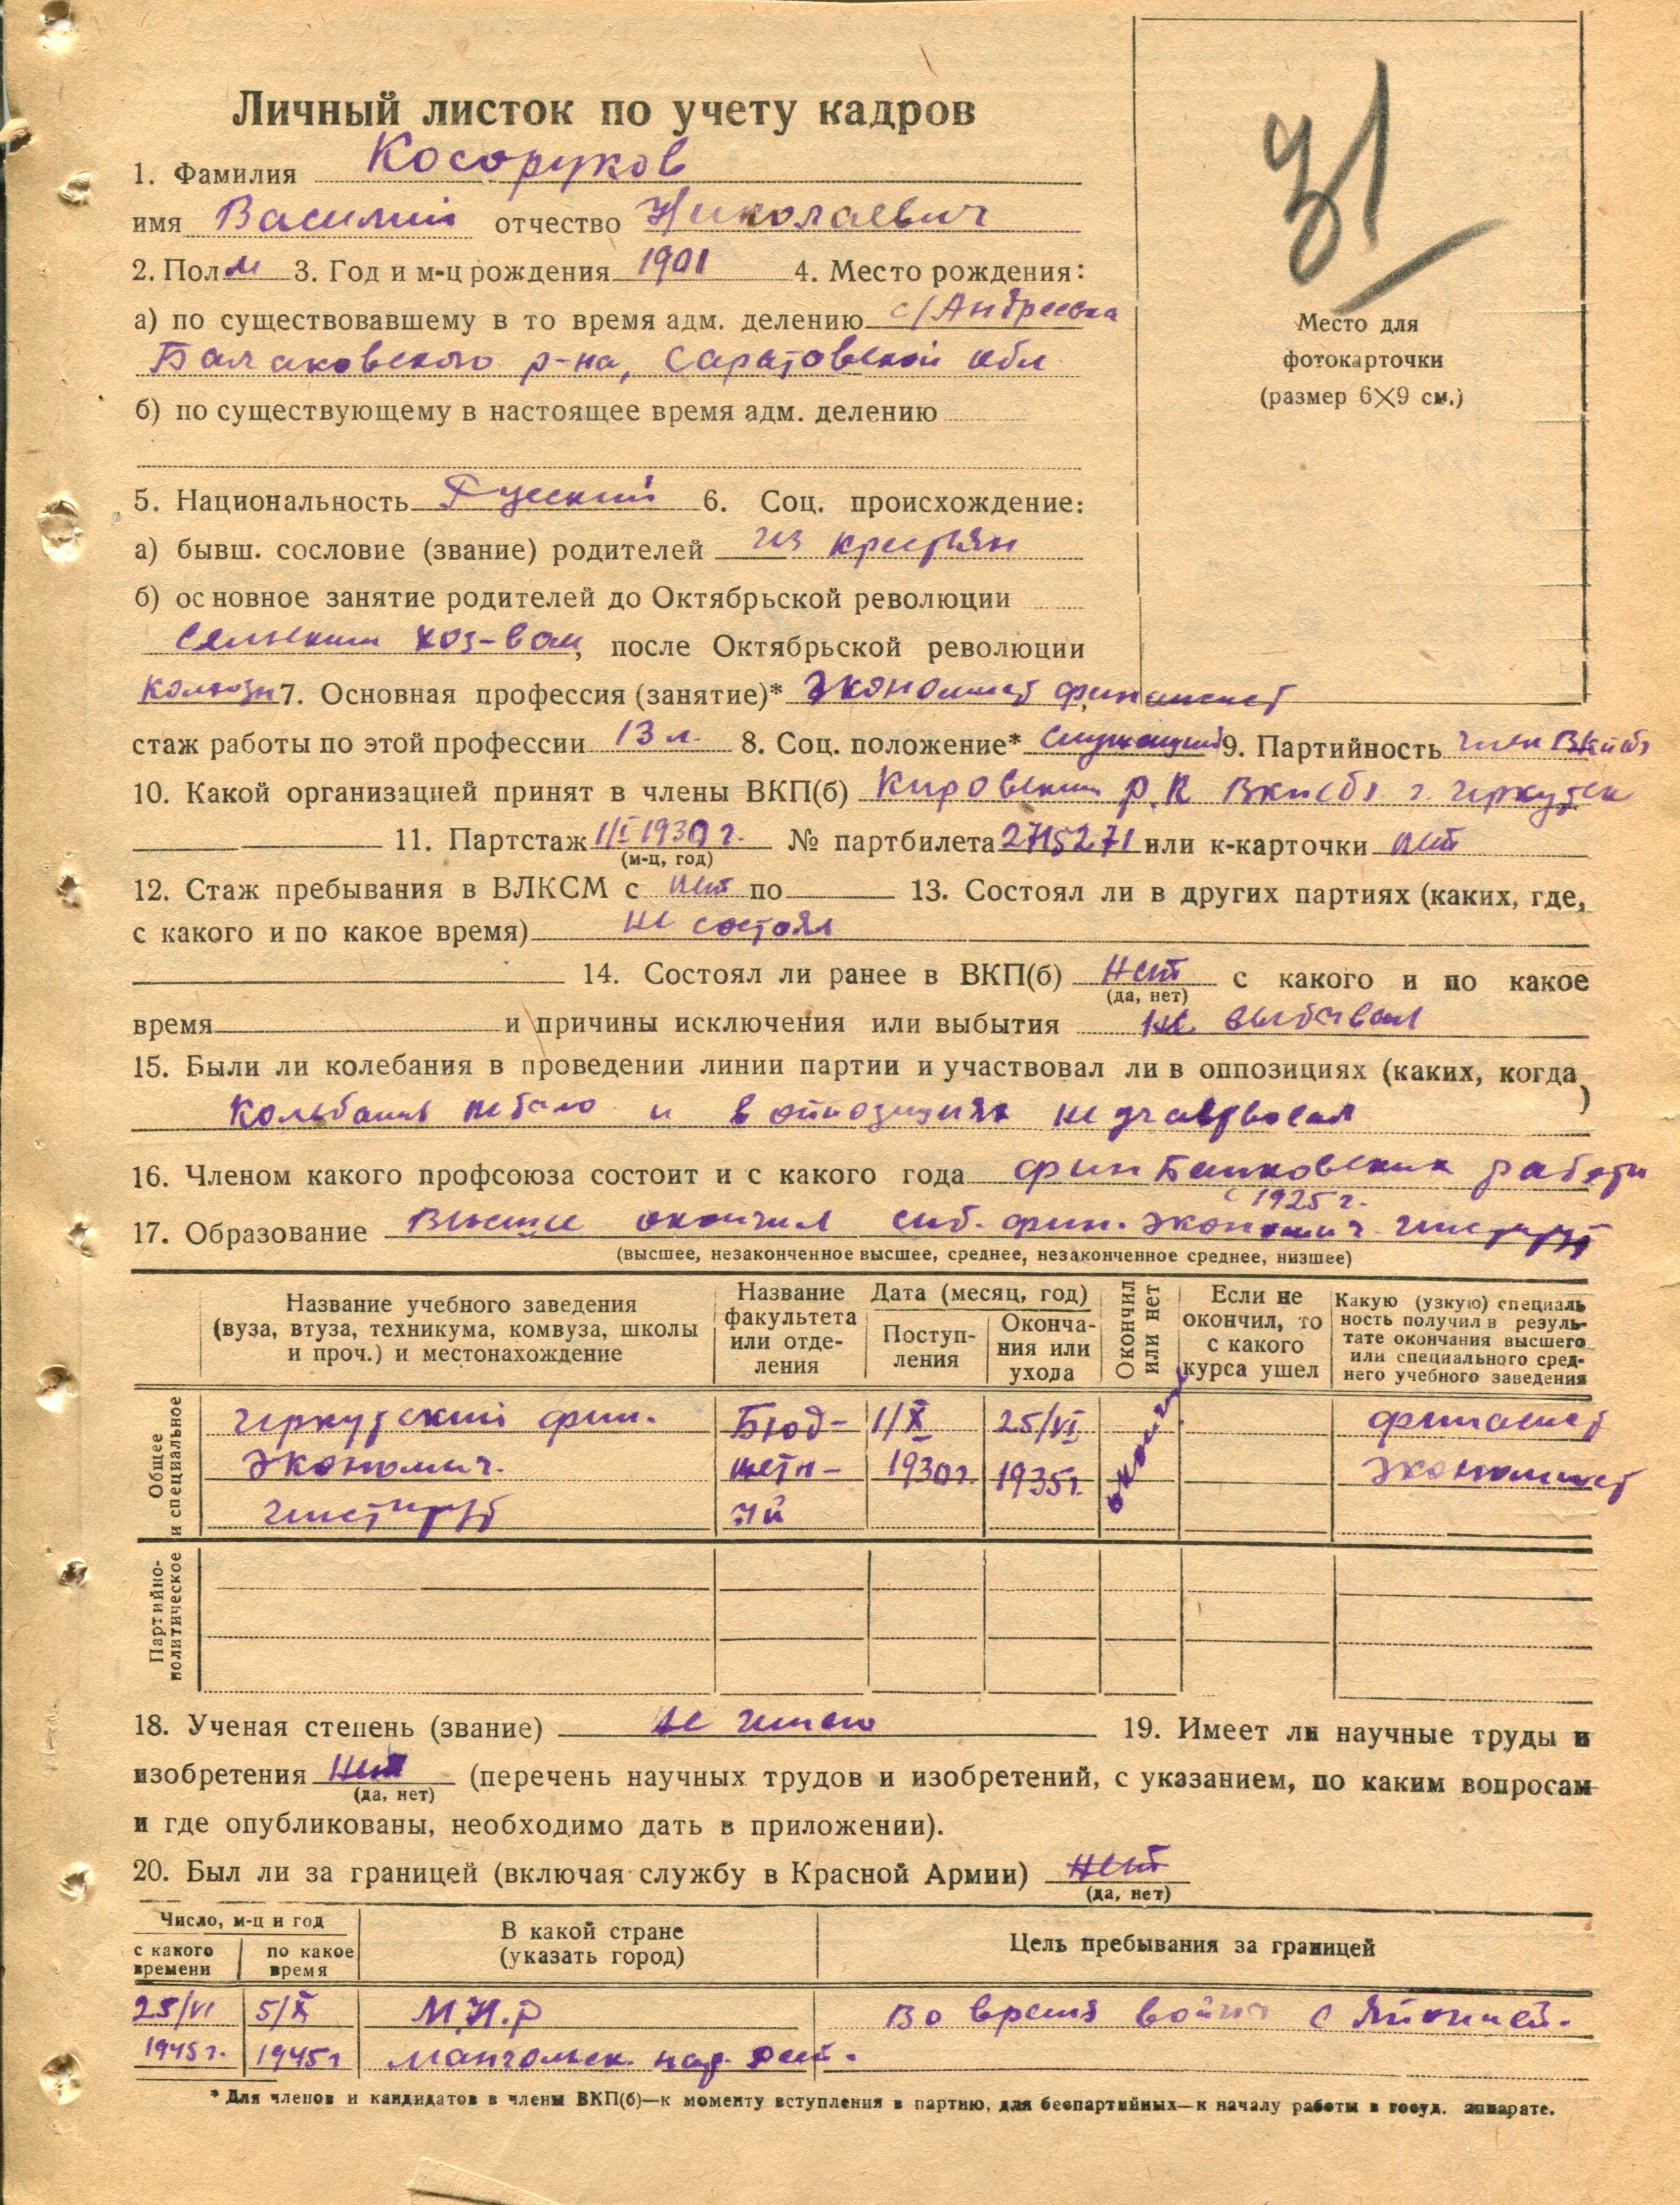 31
Личный листок по учету кадров
1. Фамилия Косоруков
имя Василий отчество Николаевич
2. Пол м 3. Год и м-ц рождения 1901 4. Место рождения:
а) по существовавшему в то время адм. делению с/Андреевка
Балаковского р-на, Саратовской обл
б) по существующему в настоящее время адм. делению
Место для
фотокарточки
(размер 6×9 см.)
5. Национальность Русский 6. Соц. происхождение:
а) бывш. сословие (звание) родителей из крестьян
б) основное занятие родителей до Октябрьской революции
сельским хоз-вом, после Октябрьской революции
7. Основная профессия (занятие)* Экономист финансист
стаж работы по этой профессии 13 л. 8. Соц. положение* служащий 9. Партийность член ВКП(б)
10. Какой организацией принят в члены ВКП(б) Кировским Р.К ВКП(б) г. Иркутск
11. Партстаж 1/I 1930 г. № партбилета 2715271 или к-карточки нет
(м-ц, год)
12. Стаж пребывания в ВЛКСМ с нет по 13. Состоял ли в других партиях (каких, где,
с какого и по какое время) не состоял
14. Состоял ли ранее в ВКП(б) нет с какого и по какое
(да, нет)
время и причины исключения или выбытия не выбывал
15. Были ли колебания в проведении линии партии и участвовал ли в оппозициях (каких, когда)
Колебаний не было и в оппозициях не участвовал
16. Членом какого профсоюза состоит и с какого года фин Банковских работн
с 1925 г.
17. Образование Высшее окончил сиб. фин. экономич. институт
(высшее, незаконченное высшее, среднее, незаконченное среднее, низшее)
Название учебного заведения
(вуза, втуза, техникума, комвуза, школы
и проч.) и местонахождение
Название
факультета
или отде-
ления
Дата (месяц, год)
Поступ-
ления
Оконча-
ния или
ухода
Окончил
или нет
Если не
окончил, то
с какого
курса ушел
Какую (узкую) специаль
ность получил в резуль-
тате окончания высшего
или специального сред-
него учебного заведения
Общее
и специальное
Иркутский фин. Бюд- 1/X 25/VI окончил финансист
экономич. жетн- 1930 г. 1935 г. экономист
институт ый
Партийно-
политическое
18. Ученая степень (звание) не имею 19. Имеет ли научные труды и
изобретения нет (перечень научных трудов и изобретений, с указанием, по каким вопросам
(да, нет)
и где опубликованы, необходимо дать в приложении).
20. Был ли за границей (включая службу в Красной Армии) нет
(да, нет)
Число, м-ц и год
с какого
времени
по какое
время
В какой стране
(указать город)
Цель пребывания за границей
25/VI 5/X М.Н.Р Во время войны с Японией.
1945 г. 1945 г Монгольск. нар. респ.
* Для членов и кандидатов в члены ВКП(б)—к моменту вступления в партию, для беспартийных—к началу работы в госуд. аппарате.